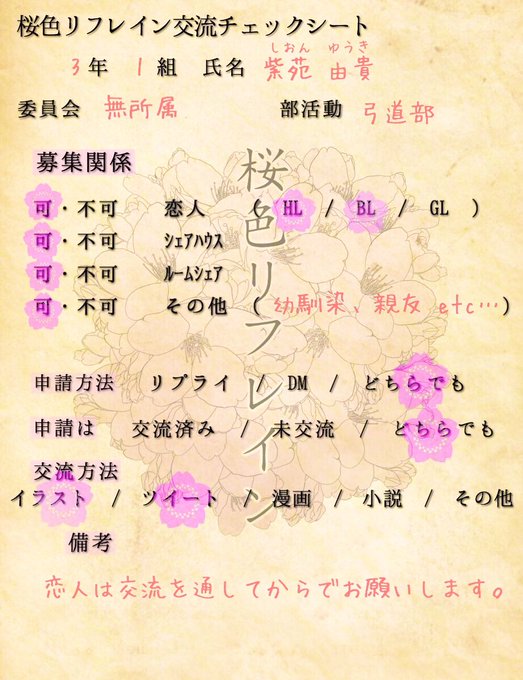 桜色リフレイン交流チェックシート
3年 1組 氏名 紫苑 由貴
しおん ゆうき
委員会 無所属 部活動 弓道部
桜色リフレイン
募集関係
可・不可 恋人 ( HL / BL / GL )
可・不可 シェアハウス
可・不可 ルームシェア
可・不可 その他 ( 幼馴染、親友 etc… )
申請方法 リプライ / DM / どちらでも
申請は 交流済み / 未交流 / どちらでも
交流方法
イラスト / ツイート / 漫画 / 小説 / その他
備考
恋人は交流を通してからでお願いします。